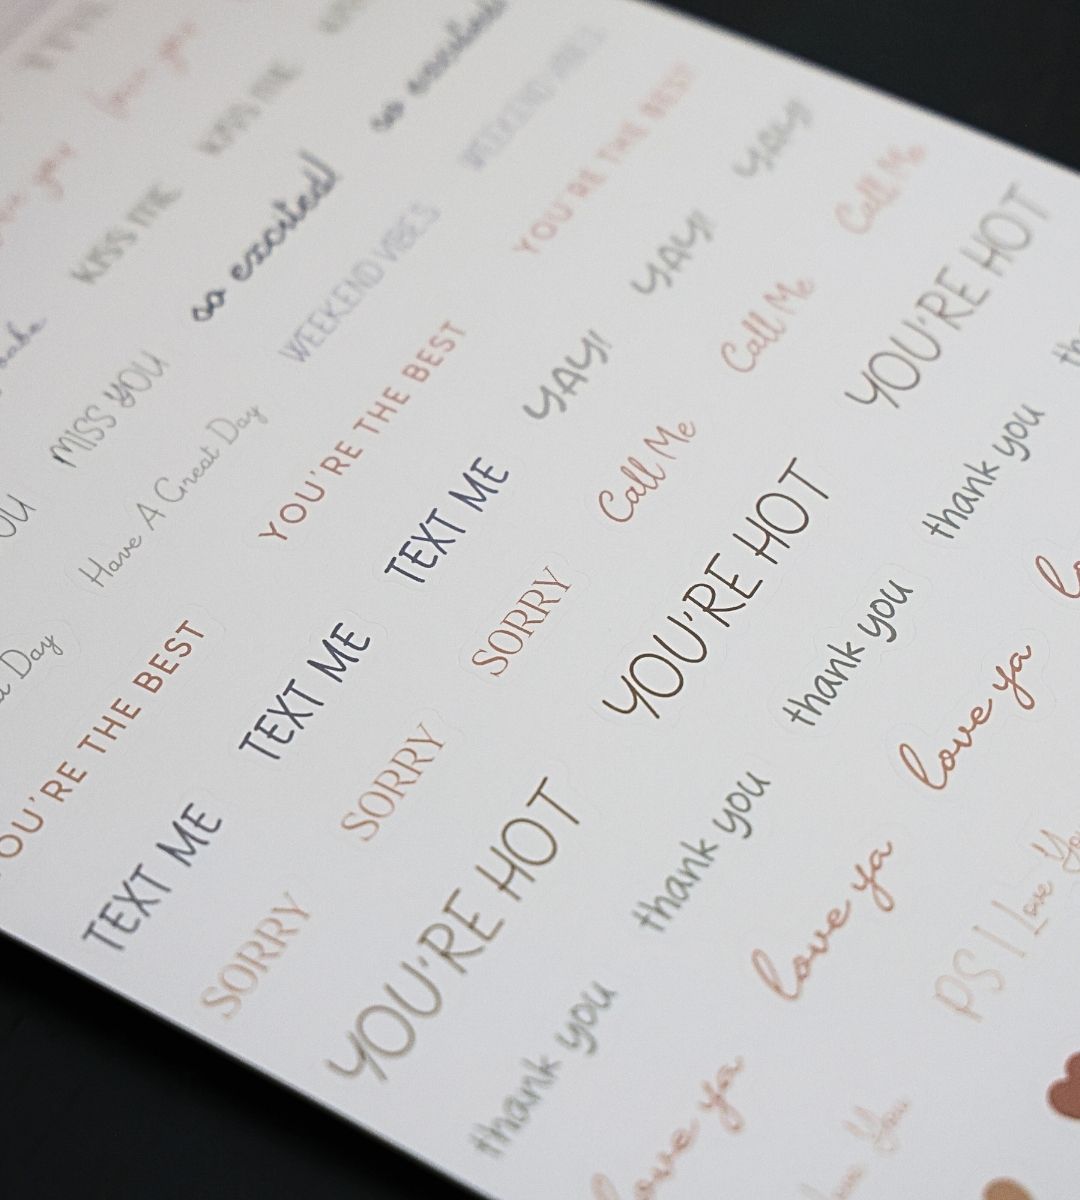 love you
love you
KISS ME
KISS ME
KISS ME
so excited!
so excited!
MISS YOU
WEEKEND VIBES
WEEKEND VIBES
Day
Have A Great Day
YOU'RE THE BEST
YOU'RE THE BEST
YOU'RE THE BEST
TEXT ME
TEXT ME
TEXT ME
YAY!
YAY!
YAY!
SORRY
SORRY
SORRY
Call Me
Call Me
Call Me
YOU'RE HOT
YOU'RE HOT
YOU'RE HOT
thank you
thank you
thank you
thank you
love ya
love ya
love ya
PS I Love You